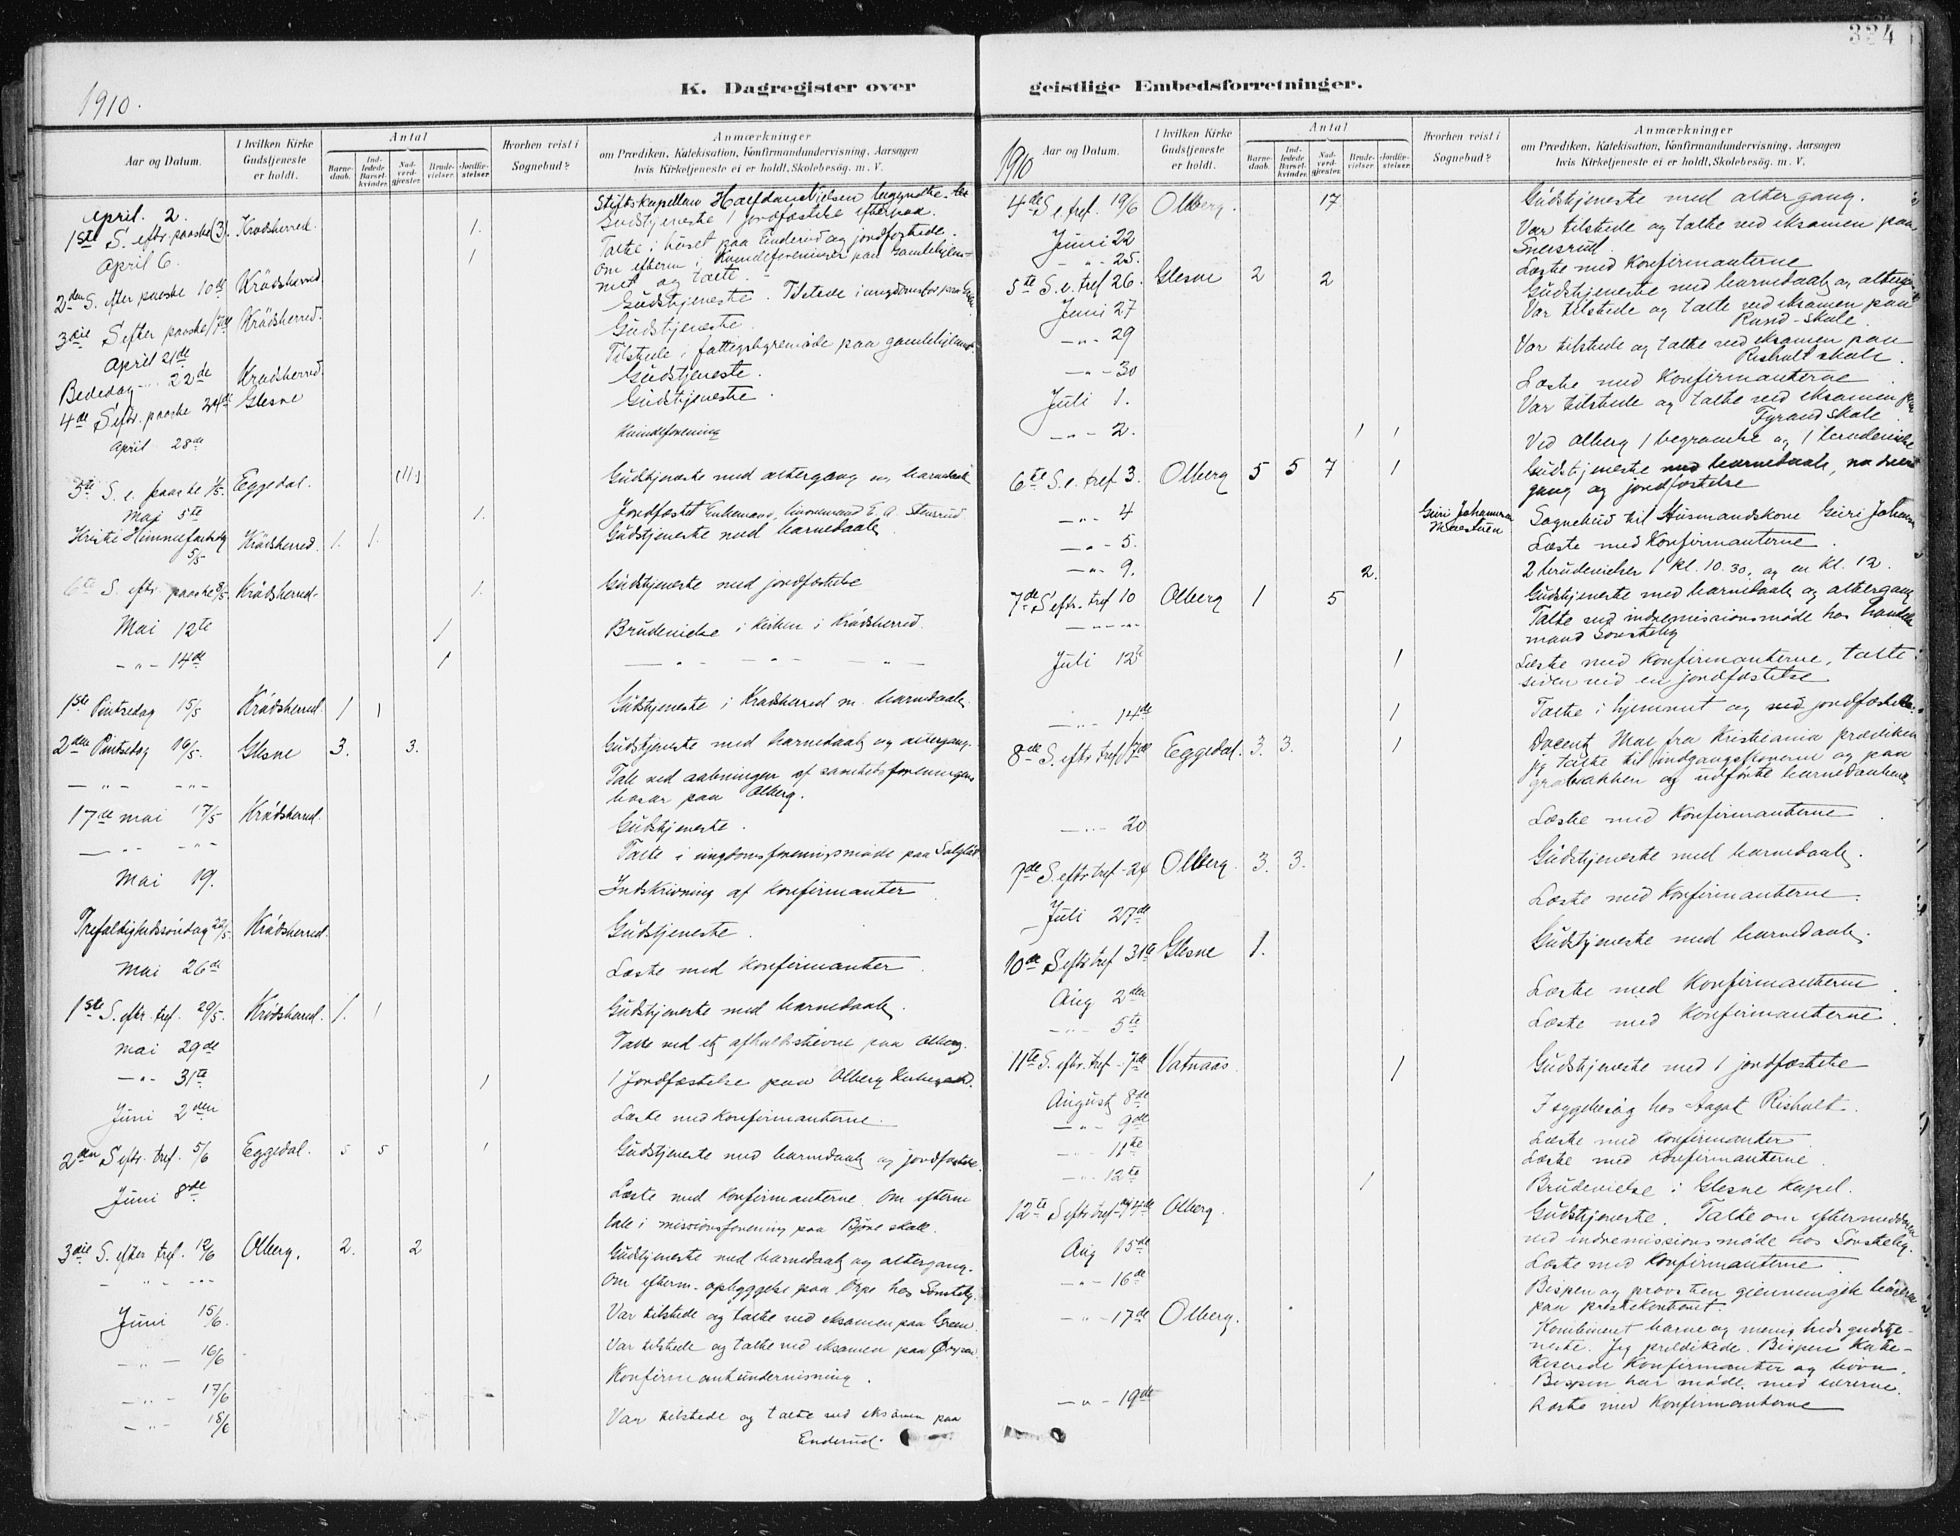 324
1910.
K. Dagregister over geistlige Embedsforretninger.
Aar og Datum.
I hvilken Kirke Gudstjeneste er holdt.
Antal
Barnedaab.
Indledede Barselkvinder.
Nadverdgjester.
Brudevielser.
Jordfæstelser.
Hvorhen reist i Sognebud?
Anmærkninger
om Prædiken, Katekisation, Konfirmandundervisning, Aarsagen
hvis Kirketjeneste ei er holdt, Skolebesøg. m. V.
April 2. Stiftskapellan Halfdan Nielsen begyndte
1ste S. eftr. paaske (3). Krødsherred. 1. Gudstjeneste 1 jordfæstelse efterpaa.
April 6. 1 Talte i huset paa Enderud og jordfæstede.
om efterm. i Kvindeforeninger paa Gamlehjemmet og talte.
2den S. efter paaske 10de Krødsherred Gudstjeneste. Tilstede i ungdomsfor. paa
3die S efter paaske 17de Krødsherred. Gudstjeneste.
April 21de Tilstede i fattigstyremøde paa gamlehjemmet.
Bededag -"- 22de Krødsherred Gudstjeneste.
4de S eftr. paaske 24de Glesne Gudstjeneste.
April 28de Kvindeforening
5te S. e. paaske 1/5. Eggedal. Gudstjeneste med altergang og barnedaab
Mai 5te 1. Jordfæstet Enkemand, E. A. Stensrud
Kristi Himmelfartsdag 5/5 Krødsherred. 1. 1. Gudstjeneste med barnedaab.
6te S. eftr. paaske 8/5. Krødsherred- 1. Gudstjeneste med jordfæstelse
Mai 12te 1 Brudevielse i kirken i Krødsherred.
-"- 14de 1 -"- -"- -"-
1ste Pintsedag 15/5 Krødsherred. 1 1 Gudstjeneste i Krødsherred m. barnedaab.
2den Pintsedag 16/5. Glesne 3. 3. Gudstjeneste med barnedaab og altergang.
-"- -"- Tale ved aabningen af sanitetsforeningens
basar paa Olberg.
17de mai 17/5 Krødsherred. Gudstjeneste.
-"- -"- Talte i ungdomsforeningsmøde paa
Mai 19. Indskrivning af Konfirmanter
Trefaldighedssøndag 22/5. Krødsherred. Gudstjeneste.
Mai 26de Læste med Konfirmanter.
1ste S. eftr. tref. 29/5. Krødsherred. 1. 1 Gudstjeneste med barnedaab.
Mai 29de Talte ved et afholdsstevne paa Olberg.
-"- 31te 1 1 Jordfæstelse paa Olberg Kirkegaard.
Juni 2den Læste med Konfirmanterne.
2den S eftr. tref. 5/6 Eggedal. 5 5 1 Gudstjeneste med barnedaab og jordfæstelse.
Juni 8de Læste med Konfirmanterne. Om efterm
tale i missionsforening paa Bjøre skole.
3die S. efter tref. 12/6 Olberg. 2. 2 Gudstjeneste med barnedaab og altergang.
-"- -"- Om efterm. opbyggelse paa Orpe hos Sønsteby.
Juni 15/6. Var tilstede og talte ved eksamen paa Green.
-"- 16/6 Var tilstede og talte ved eksamen paa
-"- 17/6 Konfirmantundervisning.
-"- 18/6 Var tilstede og talte ved eksamen paa
Enderud.
1910
Aar og Datum.
I hvilken Kirke Gudstjeneste er holdt.
Antal
Barnedaab.
Indledede Barselkvinder.
Nadverdgjester.
Brudevielser.
Jordfæstelser.
Hvorhen reist i Sognebud?
Anmærkninger
om Prædiken, Katekisation, Konfirmandundervisning, Aarsagen
hvis Kirketjeneste ei er holdt, Skolebesøg. m. V.
4de S e tref. 19/6 Olberg. 17 Gudstjeneste med altergang.
Juni 22 Var tilstede og talte ved eksamen paa
Snersrud.
-"- 25. Læste med Konfirmanterne
5te S. e. tref 26. Glesne 2 2 Gudstjeneste med barnedaab og altergang
Juni 27 Var tilstede og talte ved eksamen paa
Rund-skole.
-"- 29 Var tilstede og talte ved eksamen paa
Risholt skole.
-"- 30 Læste med Konfirmanterne
Juli 1. Var tilstede og talte ved eksamen paa
Fyrand skole.
-"- 2. 1 1 Ved Olberg 1 begravelse og 1 brudevielse
6te S. e. tref 3. Olberg 5 5 7 1 Gudstjeneste med barnedaab,
gang og jordfæstelse
-"- 4 Guri Johannesen Sognebud til Husmandskone Guri
-"- 5. Læste med Konfirmanterne.
-"- 9. 2. 2 brudevielser 1 kl. 10.30, og en kl. 12.
7de S eftr. tref 10 Olberg 1 5 Gudstjeneste med barnedaab og altergang
-"- -"- Talte ved indremissionsmøde hos handelsmand Sønsteby
Juli 12te 1 Læste med Konfirmanterne, talte
siden ved en jordfæstelse
-"- 14de 1 Talte i hjemmet og ved jordfæstelse.
8de S eftr tref 17de Eggedal. 3. 3. 1 Docent Moe fra Kristiania prædiken
jeg talte til indgangskonerne og paa
gravbakken og udførte barnedaabene
-"- 20 Læste med Konfirmanterne
9de S. eftr tref - 24 Olberg. 3. 3. Gudstjeneste med barnedaab.
Juli 27de Læste med Konfirmanterne.
10de S eftr tref 31te Glesne 1. Gudstjeneste med barnedaab.
Aug 2den Læste med Konfirmanterne.
-"- 5te Læste med Konfirmanterne.
11te S. eftr. tref - 7de Vatnaas. 1 Gudstjeneste med 1 jordfæstelse
August 8de I sygebesøg hos Aagot Risholt.
-"- 9de Læste med Konfirmanter.
-"- 11te Læste med Konfirmanterne.
-"- 12te 1 Brudevielse i Glesne Kapel.
12te S eftr tref 14de Olberg. Gudstjeneste. Talte om eftermiddagen
ved indremissionsmøde hos Sønsteby.
Aug 15de Læste med Konfirmanterne.
-"- 16de Bispen og provsten gjennemgik bøgerne
paa prestekontoret
-"- 17de Olberg. Kombineret barne og menighedsgudstjeneste. Jeg prædikede. Bispen katekiserede Konfirmanter og børn.
Bispen har møde med lærerne.
-"- 19de Læste med Konfirmanterne